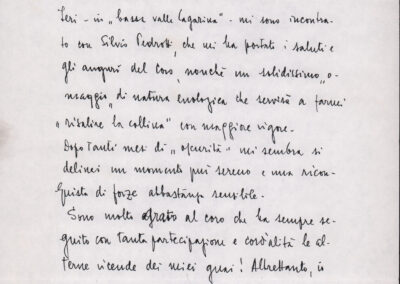 Ieri - in „bassa valle Lagarina" - mi sono incontra-
to con Silvio Pedrotti, che mi ha portato i saluti e
gli auguri del Coro, nonchè un solidissimo „o-
maggio„ di natura enologica che servirà a farmi
„risalire la collina" con maggiore vigore.
Dopo tanti mesi di „oscurità" mi sembra si
delinei un momento più sereno e una ricon-
quista di forze abbastanza sensibile.
Sono molto grato al coro che ha sempre se-
guito con tanta partecipazione e cordialità le al-
terne vicende dei miei guai! Altrettanto, io